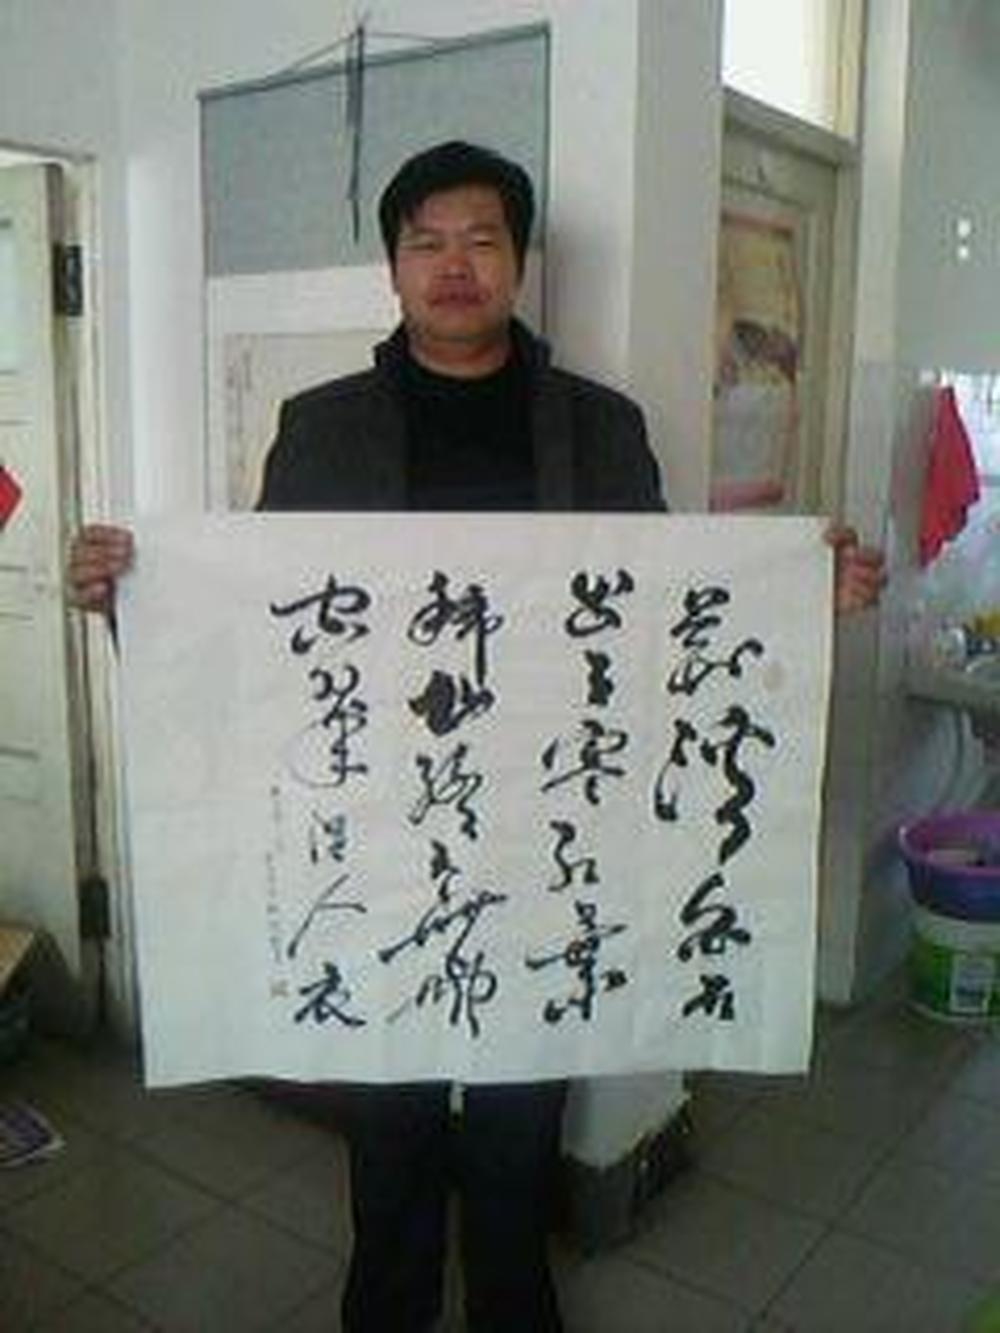 荆溪白石
出天寒红葉
稀山路元無雨
空翠湿人衣